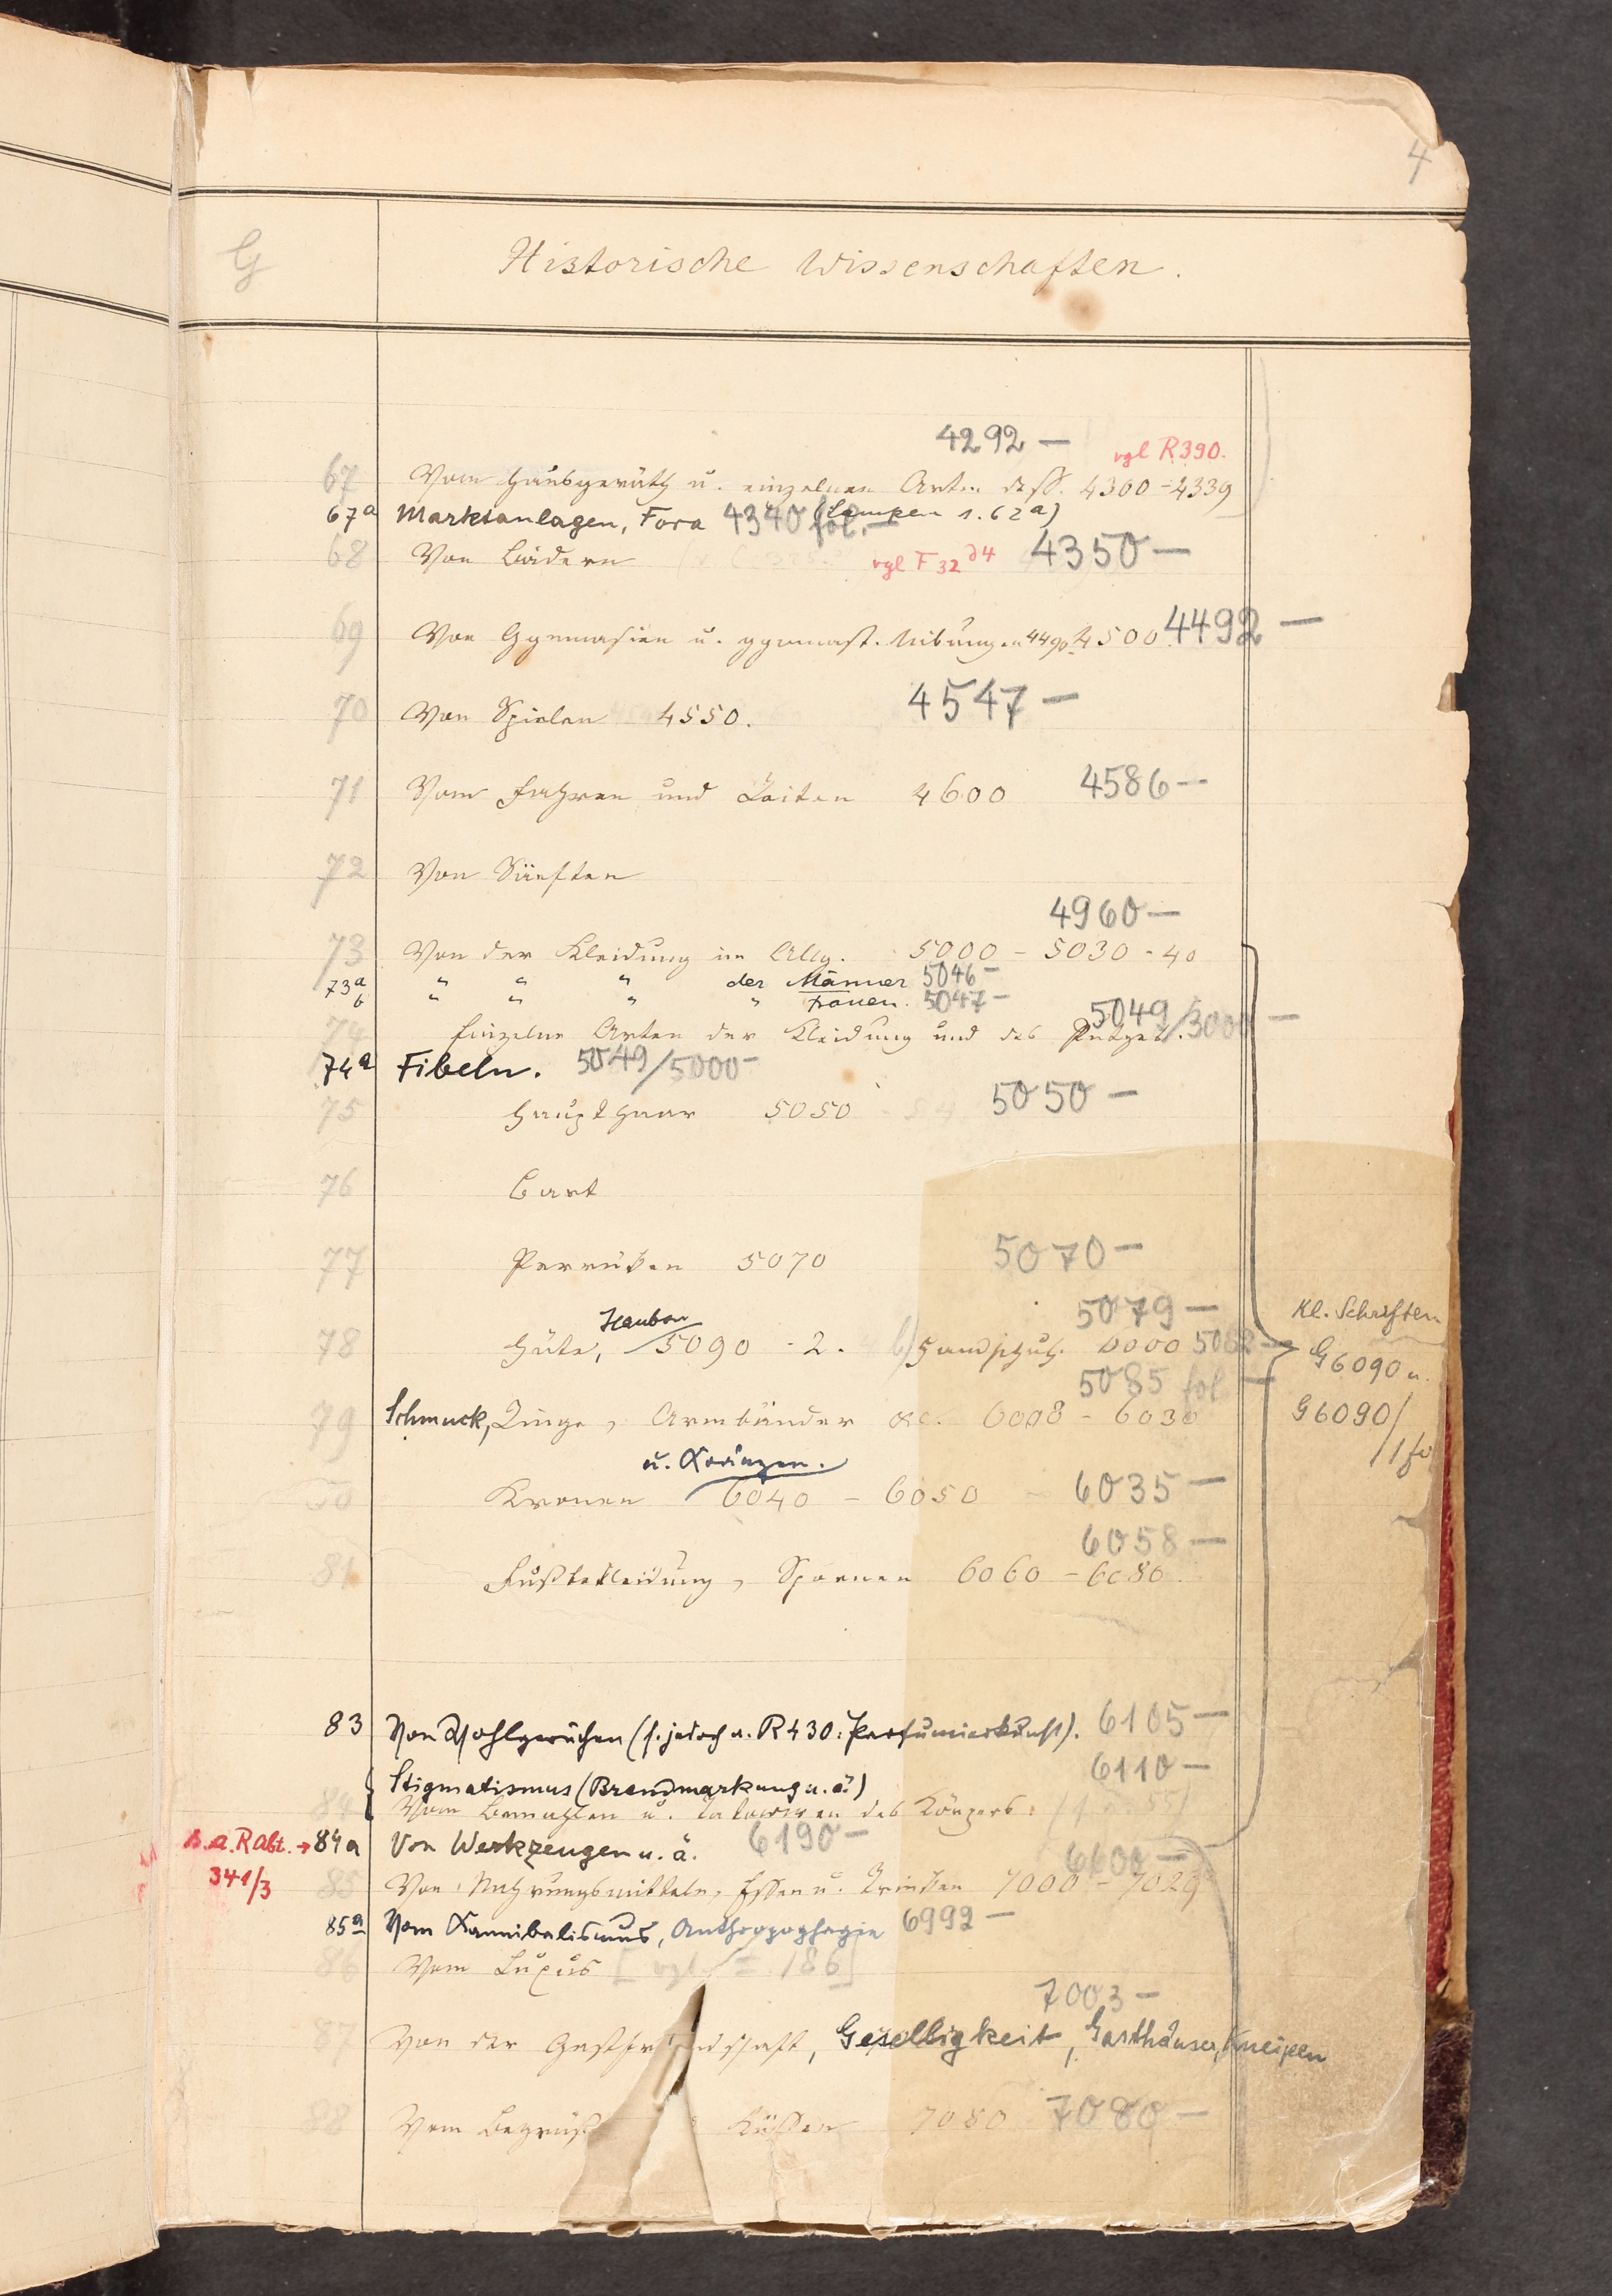 4
G Historische Wissenschaften.
4292 — vgl R390.
67 Vom Hausgeräth u. einzelnen Arten dess. 4300-4339
67a Marktanlagen, Fora 4340 fol. — (Lampen s. 62a)
68 Von Bädern vgl F 32 d4 4350 —
69 Von Gymnasien u. gymnast. Uibungen 4490 4500 4492 —
70 Von Spielen 4550. 4547 —
71 Vom Fahren und Reiten 4600 4586 —
72 Von Sänften
4960 —
73 Von der Kleidung im Allg. 5000 - 5030 - 40
73a " " " der Männer 5046 —
b " " " " Frauen. 5047 —
5049/3000 —
74 Einzelne Arten der Kleidung und des Putzes.
74a Fibeln. 5049/5000 —
75 Haupthaar 5050 5050 —
76 Bart
77 Perrüken 5070 5070 —
Hauben 5079 — Kl. Schriften
78 Hüte, 5090 - 2. b) Handschuh. 6000 5082 — G6090 u.
5085 fol — G6090/
79 Schmuck, Ringe, Armbänder &c. 6008 - 6030 1 fo
u. Kränzen.
80 Kronen 6040 - 6050 6035 —
6058 —
81 Fußbekleidung, Spornen 6060 - 6080.
83 Von Wohlgerüchen (s. jedoch a. R430: Parfumierkunst). 6105 —
6110 —
Stigmatismus (Brandmarkung u. ä.)
84 Vom Bemahlen u. Tatowiren des Körpers.
s. a. R Abt. → 84a Von Werkzeugen u. ä. 6190 —
341/3
6600 —
85 Von Nahrungsmitteln, Essen u. Trinken 7000 - 7029
85a Vom Kannibalismus, Anthropophagie 6992 —
86 Vom Luxus [vgl. 186]
7003 —
87 Von der Gastfreundschaft, Geselligkeit, Gasthäuser, Kneipen
88 Vom Begrüß Küssen 7080 7080 —